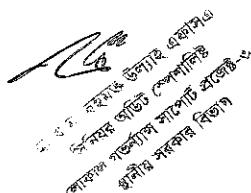 এ. কে. এম. রহমত উল্যাহ এফসিএ
সিনিয়র অডিট স্পেশালিষ্ট
লোকাল গভর্ন্যান্স সাপোর্ট প্রজেক্ট-৩
স্থানীয় সরকার বিভাগ